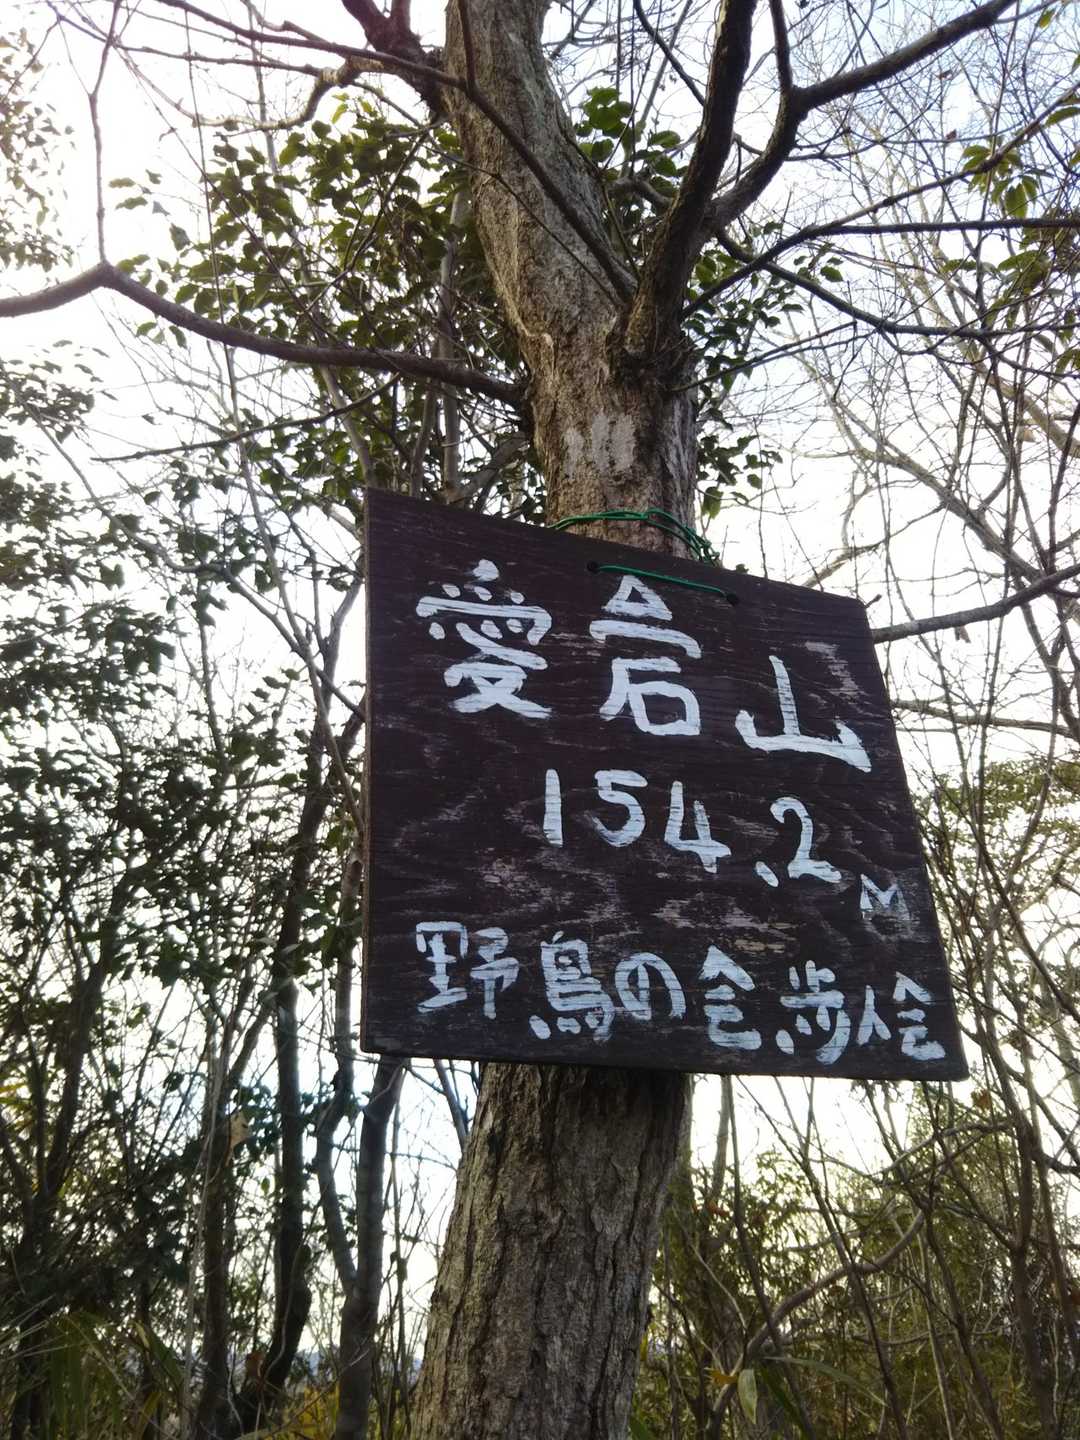 愛宕山
154.2M
野鳥の会歩絵